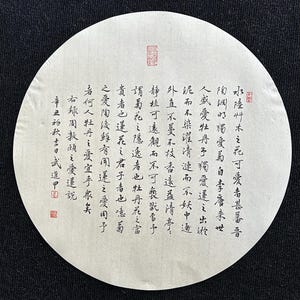 水陸艸木之花可愛者甚蕃晉
陶淵明獨愛菊自李唐來世
人盛愛牡丹予獨愛蓮之出淤
泥而不染濯清漣而不妖中通
外直不蔓不枝香遠益清亭〻
静植可遠觀而不可褻翫焉予
謂菊花之隱逸者也牡丹花之富
貴者也蓮花之君子者也噫菊
之愛陶後鮮有聞蓮之愛同予
者何人牡丹之愛宜乎衆矣
右録周敦頤之愛蓮説
辛丑初秋吉日武道甲